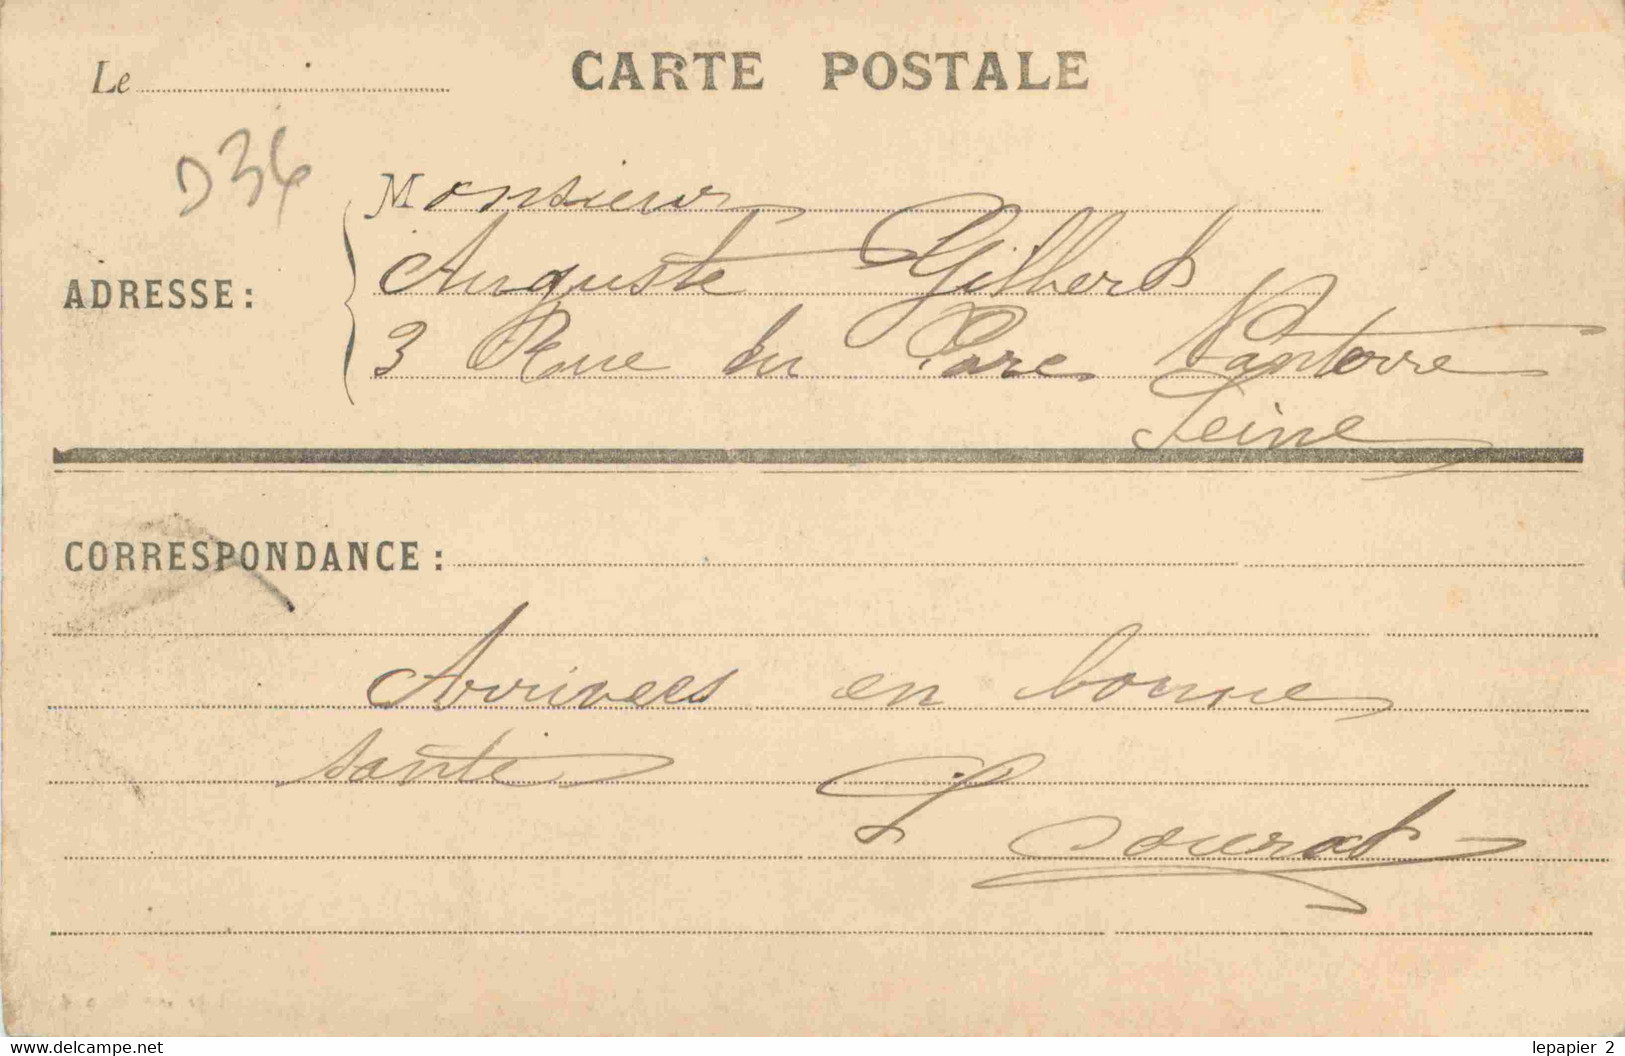 Le
CARTE POSTALE
D36
Monsieur
ADRESSE :
Auguste Gilbert
3 Rue du Parc Nanterre
Seine
CORRESPONDANCE :
Arrivees en bonne
santé
L Courat
www.delcampe.net
lepapier_2